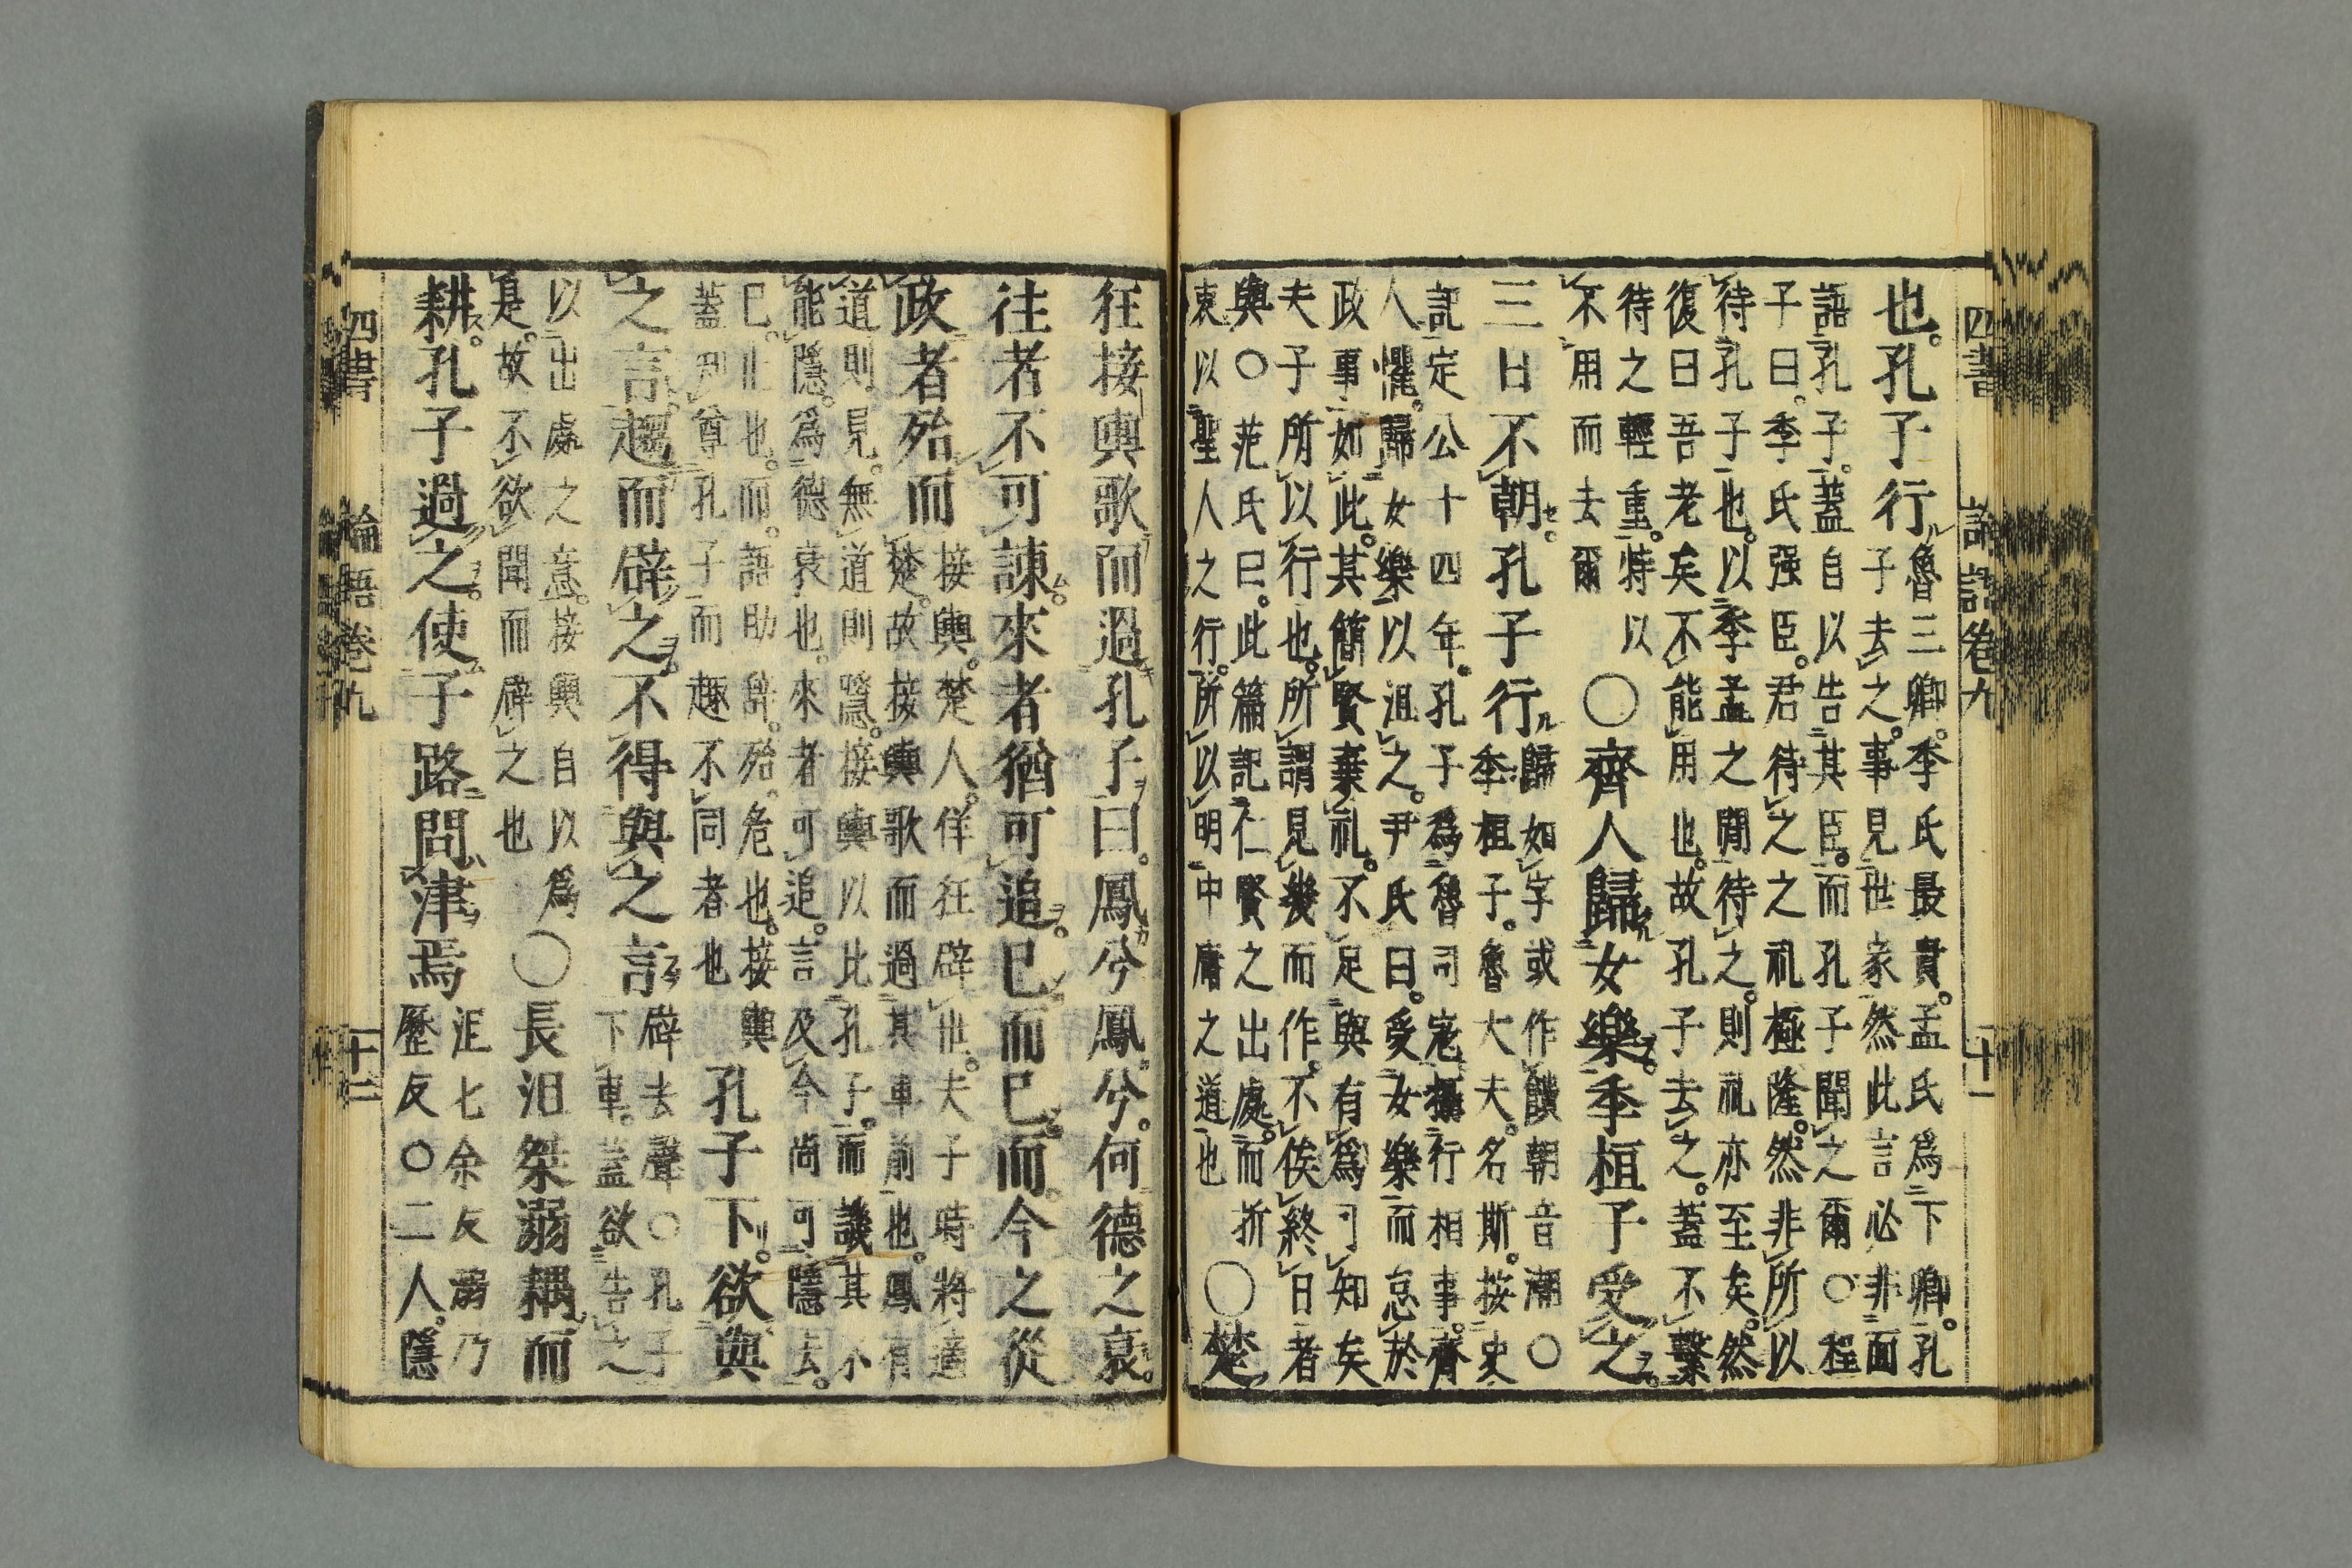 四書 論語卷九 十一
也。孔子行
魯三卿。季氏最貴。孟氏爲下卿。孔
子去之。事見世家然此言必非面
語孔子。蓋自以告其臣。而孔子聞之爾○程
子曰。季氏强臣。君待之之礼極隆。然非所以
待孔子也。以季孟之間待之。則礼亦至矣。然
復曰吾老矣不能用也。故孔子去之。蓋不繫
待之輕重。特以
不用而去爾
○齊人歸女樂。季桓子受之。
三日不朝。孔子行
歸如字或作饋朝音潮○
季桓子。魯大夫。名斯。按史
記定公十四年。孔子爲魯司寇攝行相事。齊
人懼。歸女樂以沮之。尹氏曰。受女樂而怠於
政事如此。其簡賢棄礼。不足與有爲可知矣
夫子所以行也。所謂見幾而作。不俟終日者
與○范氏曰。此篇記仁賢之出處。而折
衷以聖人之行。所以明中庸之道也
○楚
狂接輿歌而過孔子曰。鳳兮鳳兮。何德之衰。
往者不可諫。來者猶可追。已而已而。今之從
政者殆而
接輿。楚人。佯狂辟世。夫子時將適
楚。故接輿歌而過其車前也。鳳有
道則見。無道則隱。接輿以比孔子。而譏其不
能隱。爲德衰也。來者可追。言及今尚可隱去。
已。止也。而。語助辭。殆。危也。接輿
蓋知尊孔子而趣不同者也
孔子下。欲與
之言。趨而辟之。不得與之言
辟去聲○孔子
下車。蓋欲告之
以出處之意。接輿自以爲
是。故不欲聞而辟之也
○長沮桀溺耦而
耕。孔子過之。使子路問津焉
沮七余反溺乃
歷反○二人。隱
四書 論語卷九 十二